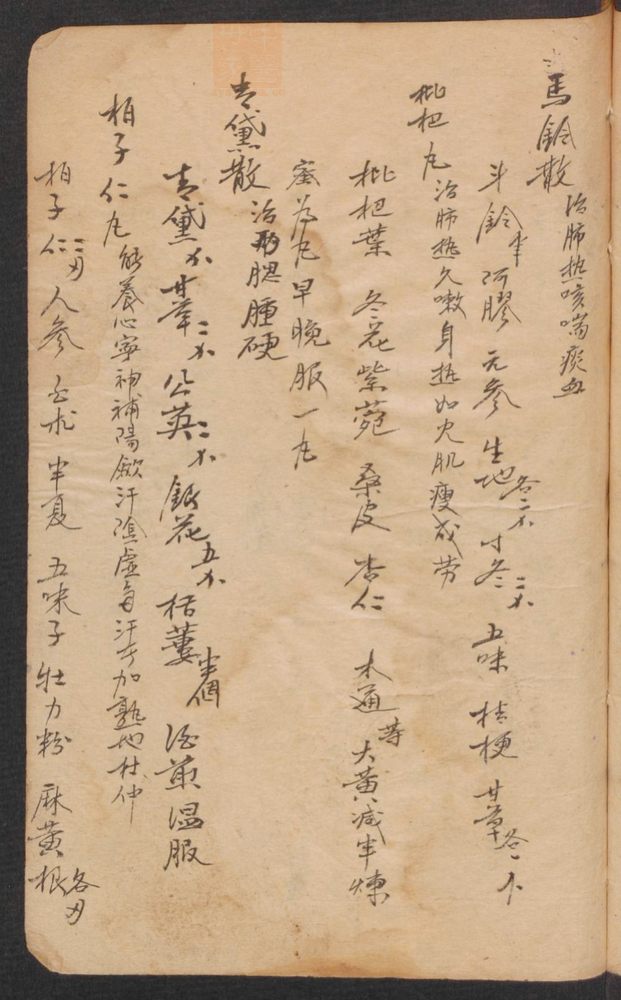 馬鈴散 治肺热咳喘痰血
斗鈴半 阿膠 元参 生地各二钱 寸冬二钱 五味 桔梗 甘草各一个
枇杷丸 治肺热久嗽身热如火肌瘦成劳
枇杷葉 冬花 紫菀 桑皮 杏仁 木通等 大黄减半煉
蜜为丸早晚服一丸
青黛散 治腮腫硬
青黛 甘草二钱 公英三钱 銀花五钱 栝蔞半個 酒煎温服
柏子仁丸 能養心寧神補陽歛汗陰虚多汗 加熟地杜仲
柏子仁二刃 人参 白术 半夏 五味子 牡力粉 麻黄根各刃